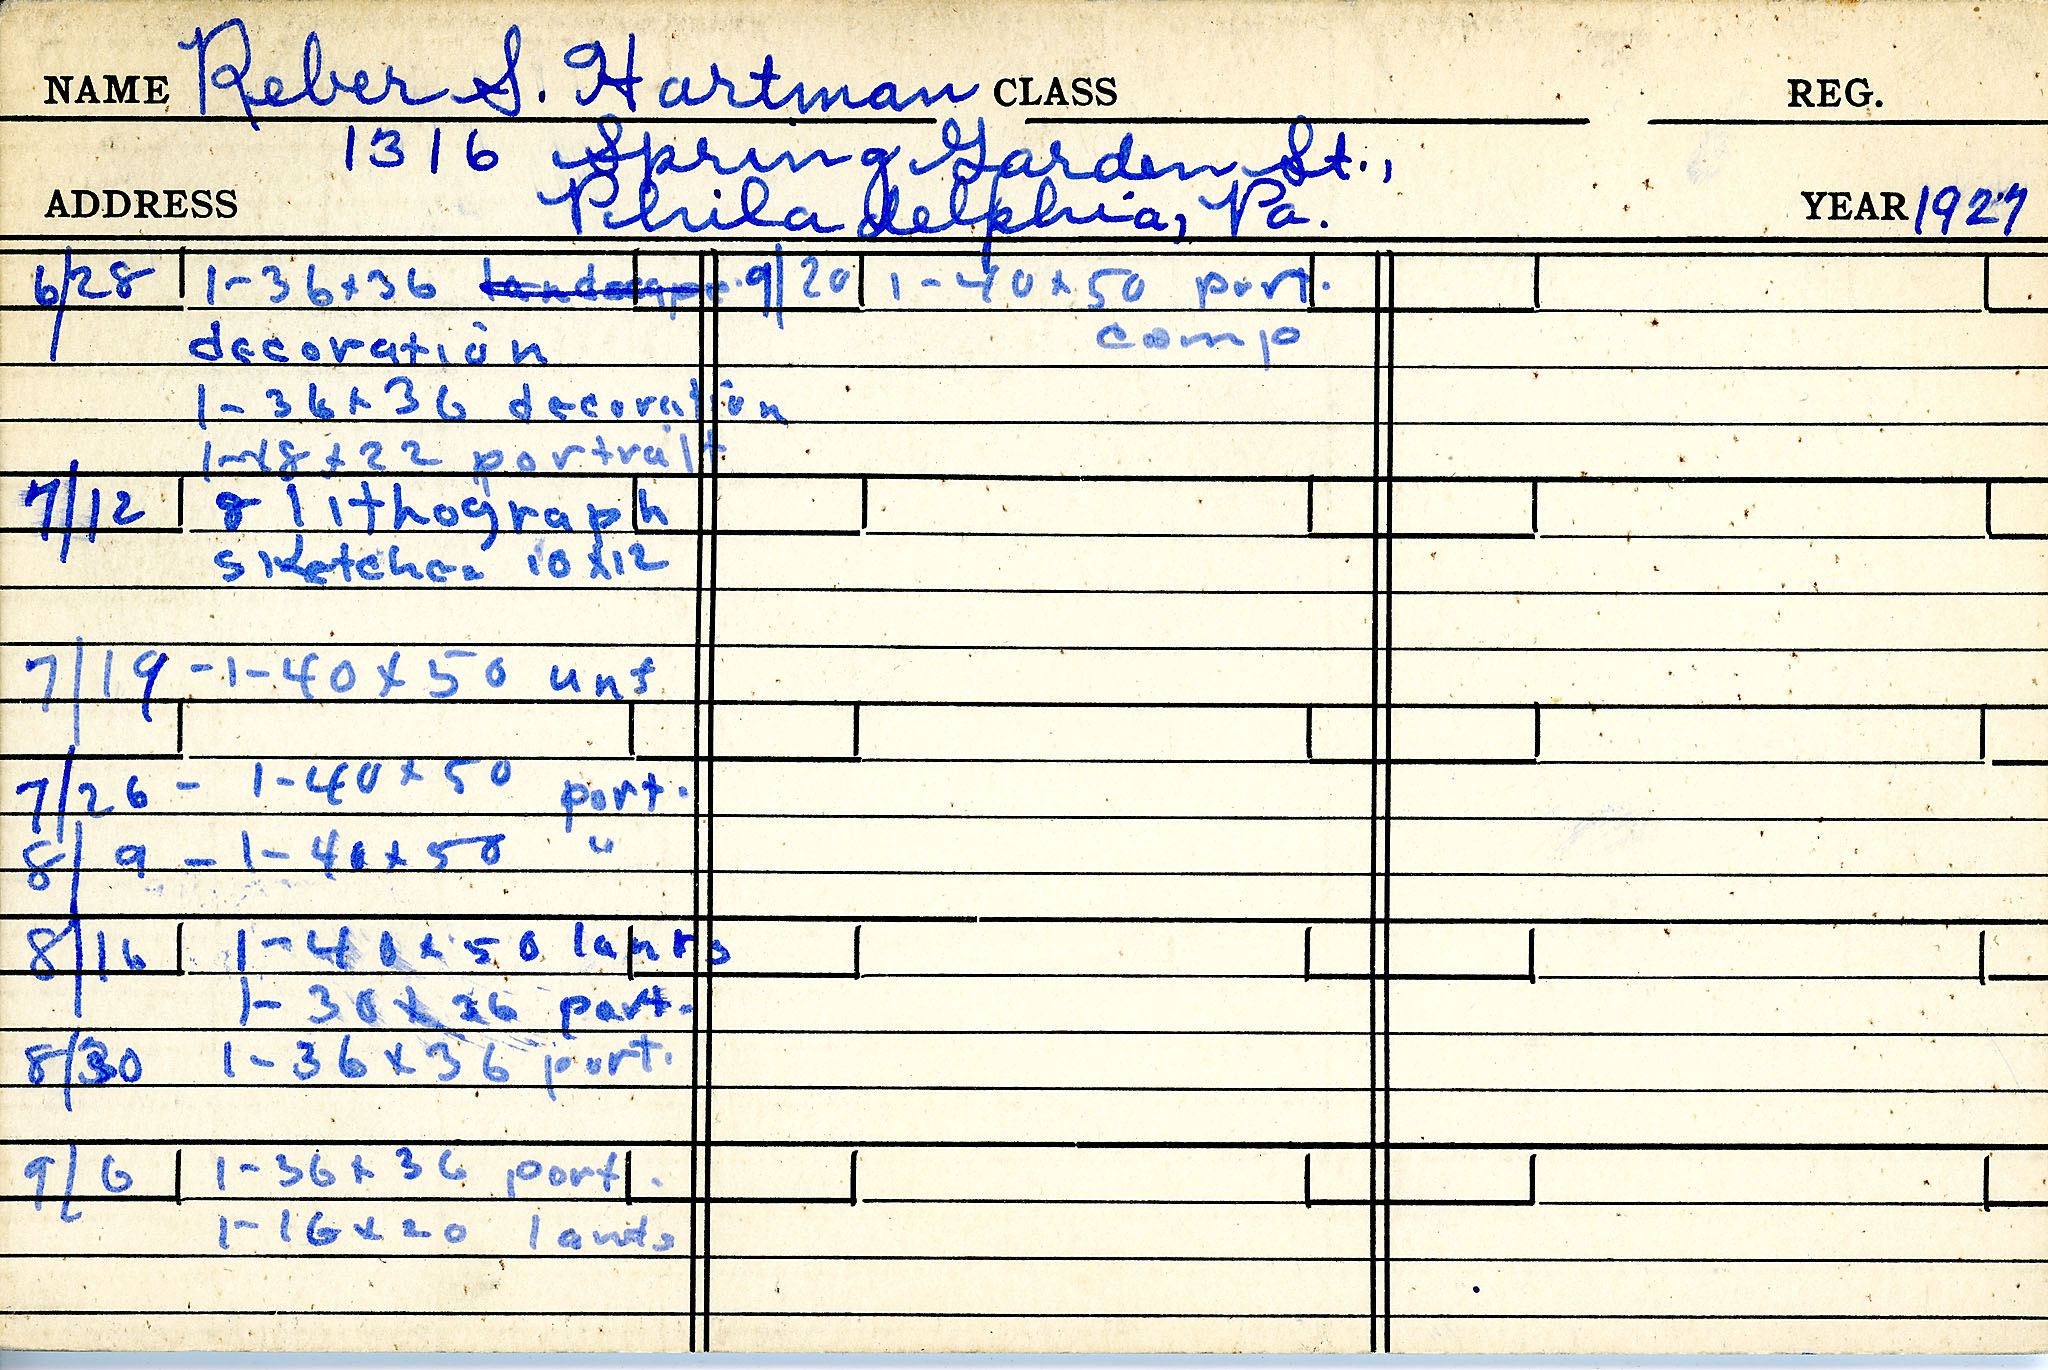 NAME Reber S. Hartman CLASS REG.
1316 Spring Garden St.,
ADDRESS Philadelphia, Pa. YEAR 1927
6/28 1-36x36 landscape
decoration
1-36x36 decoration
1-18x22 portrait
7/12 8 lithograph
sketches 10x12
7/19 -1-40x50 unf
7/26 - 1-40x50 port.
8/9 - 1-40x50 "
8/16 1-40x50 lands
1-30x36 port.
8/30 1-36x36 port.
9/6 1-36x36 port.
1-16x20 lands
9/20 1-40x50 port.
comp